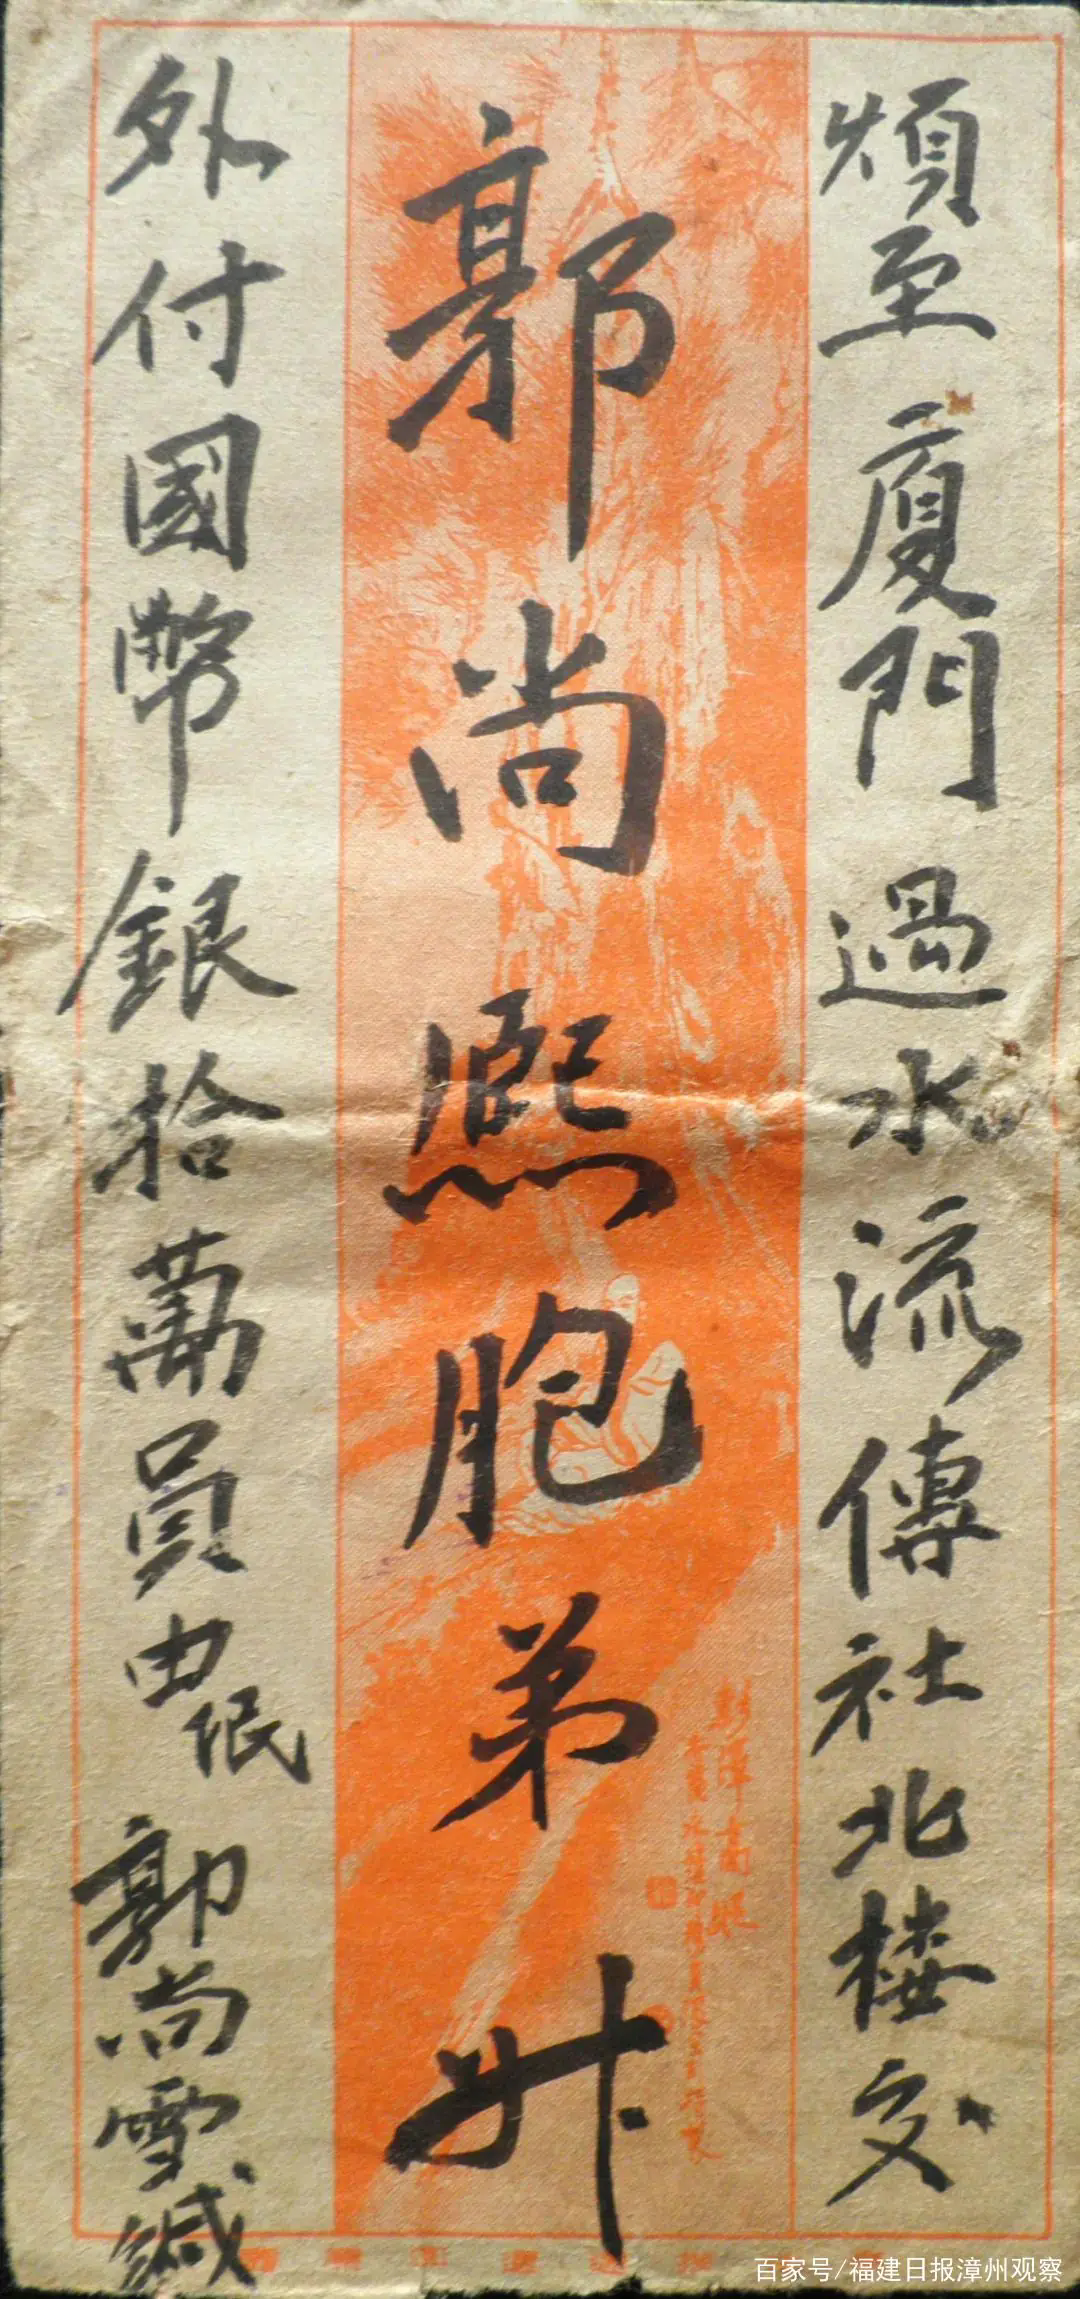 煩至廈門過水流傳社北楼交
郭尚熙胞弟升
外付國幣銀拾萬員由岷郭尚雪緘
百家号/福建日报漳州观察